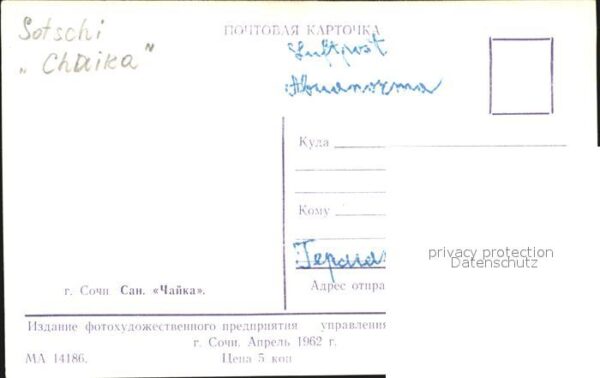 Sotschi
„Chaika"
ПОЧТОВАЯ КАРТОЧКА
Luftpost
Куда
Кому
privacy protection
Datenschutz
Адрес отпра
г. Сочи Сан. «Чайка».
Издание фотохудожественного предприятия управления
г. Сочи. Апрель 1962 г.
МА 14186. Цена 5 коп